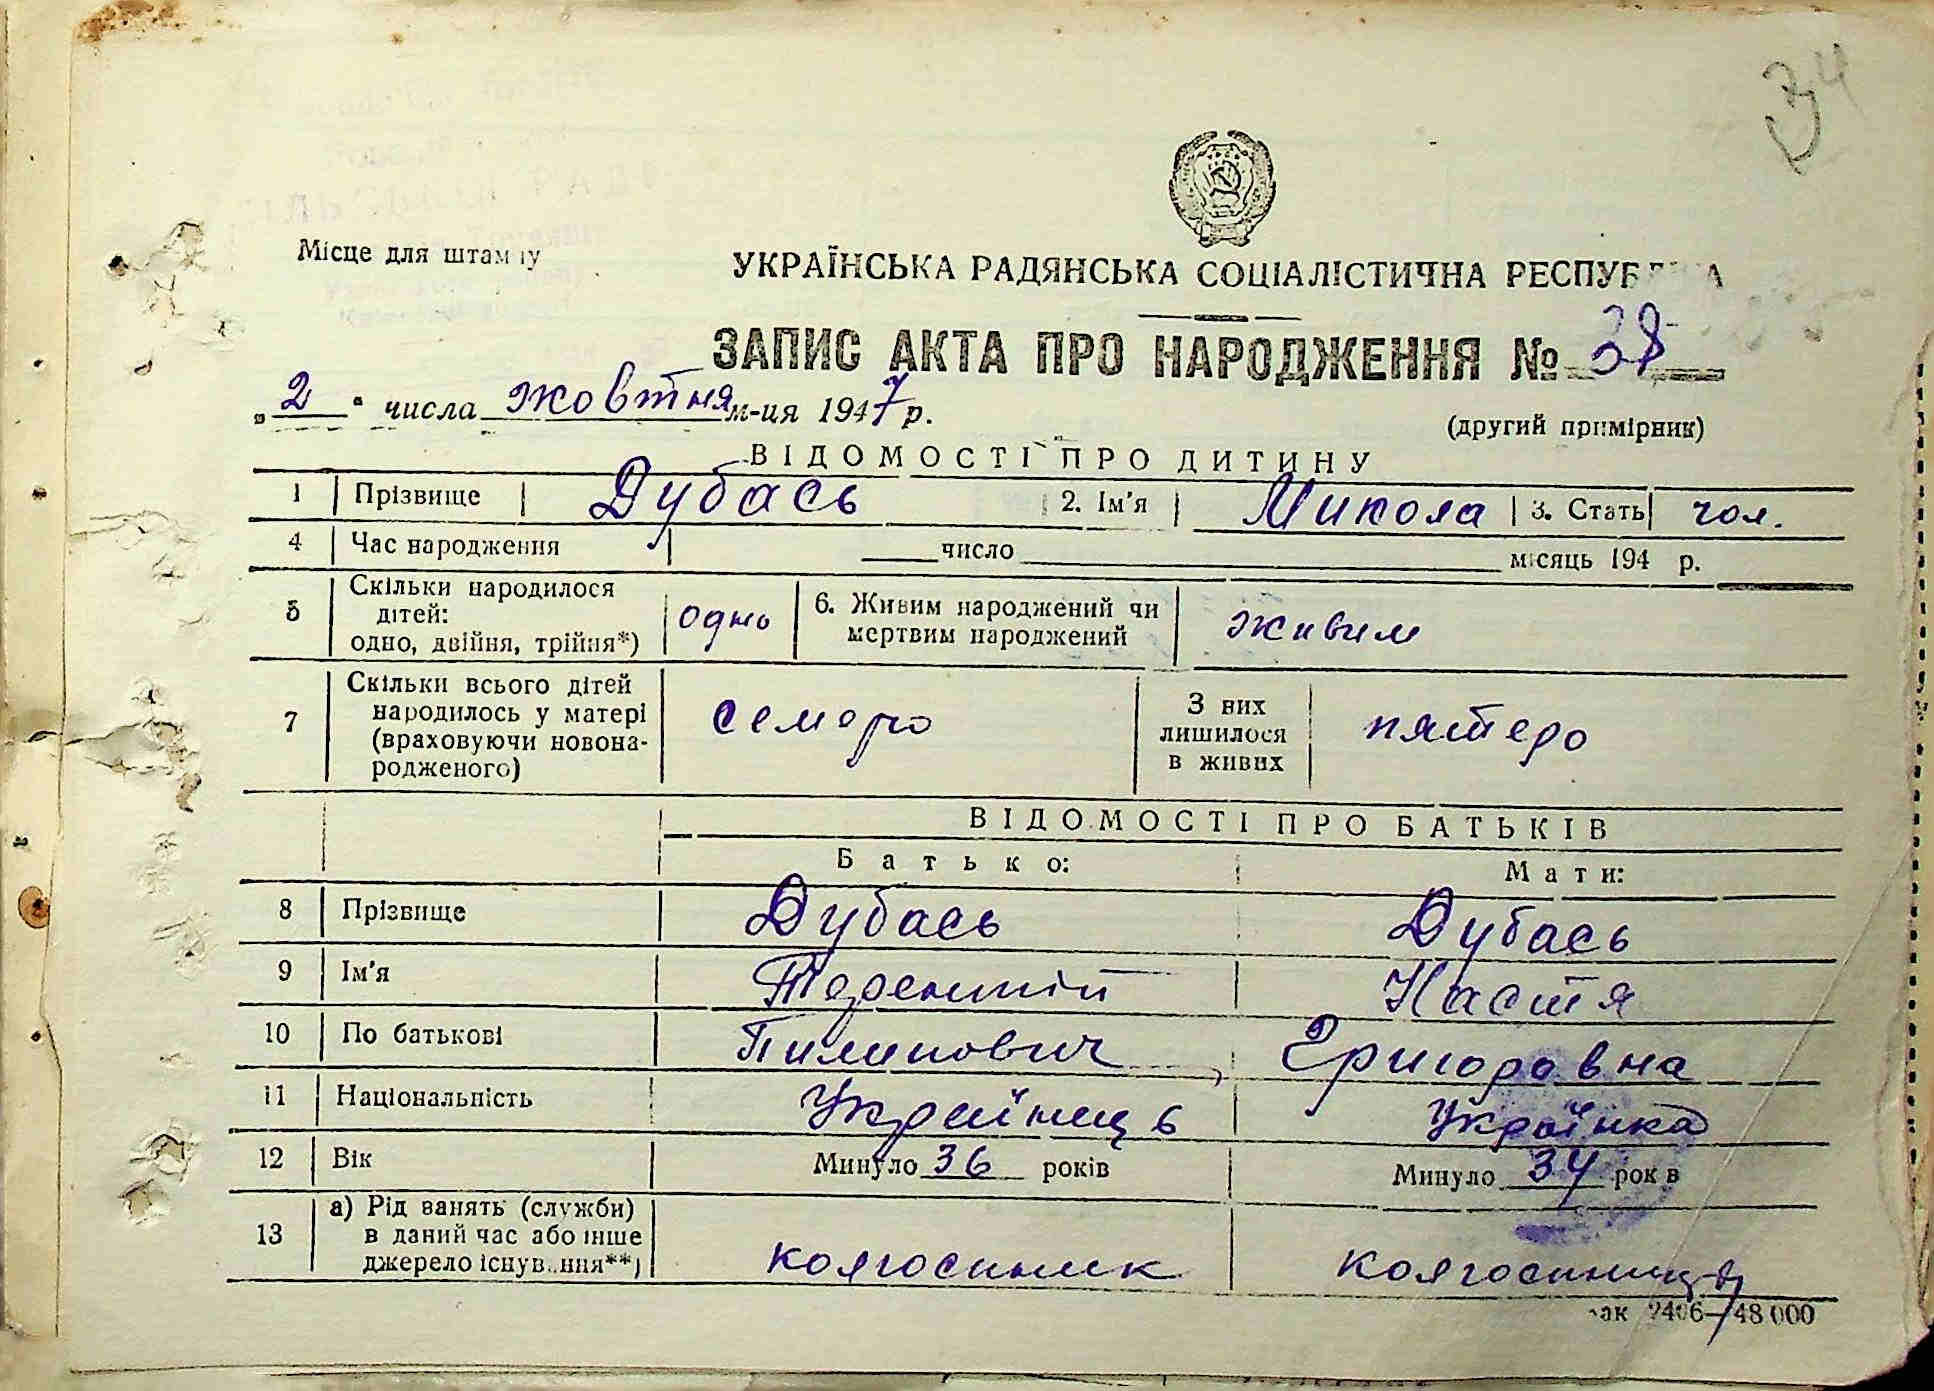 34
Місце для штампу
УКРАЇНСЬКА РАДЯНСЬКА СОЦІАЛІСТИЧНА РЕСПУБЛІКА
ЗАПИС АКТА ПРО НАРОДЖЕННЯ № 38
„2“ числа жовтня м-ця 1947 р.
(другий примірник)
ВІДОМОСТІ ПРО ДИТИНУ
1 Прізвище Дубась 2. Ім'я Микола 3. Стать чол.
4 Час народження число місяць 194 р.
5 Скільки народилося дітей: одно, двійня, трійня*) одно 6. Живим народжений чи мертвим народжений живим
7 Скільки всього дітей народилось у матері (враховуючи новонародженого) семеро З них лишилося в живих пятеро
ВІДОМОСТІ ПРО БАТЬКІВ
Батько: Мати:
8 Прізвище Дубась Дубась
9 Ім'я Терентій Настя
10 По батькові Пилипович Григоровна
11 Національність Українець Українка
12 Вік Минуло 36 років Минуло 34 років
13 а) Рід занять (служби) в даний час або інше джерело існування**) колгоспник колгоспниця
Зак 2406—48 000